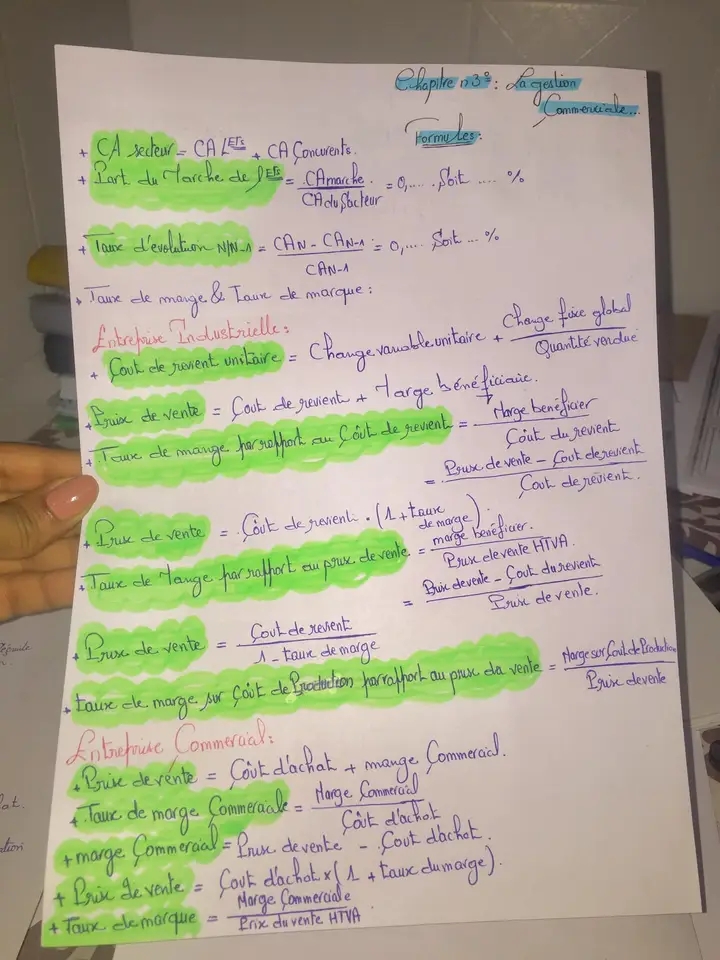 Chapitre n3°: La gestion
Commerciale...
Formules:
+ CA secteur = CA L'ETs + CA Concurents.
+ Part du Marche de l'ETs = CA marche / CA du secteur = 0,.... Soit .... %
+ Taux d'évolution N/N-1 = CAN - CAN-1 / CAN-1 = 0,.... Soit ... %
+ Taux de marge & Taux de marque:
Entreprise Industrielle:
+ Coût de revient unitaire = Charge variable unitaire + Charge fixe global / Quantité vendue
+ Prix de vente = Coût de revient + Marge bénéficiaire.
+ Taux de marge par rapport au Coût de revient = Marge benéficier / Coût du revient
= Prix de vente - Coût de revient / Cout de revient.
+ Prix de vente = Coût de revient . (1 + taux de marge)
+ Taux de Marge par rapport au prix de vente = marge benéficier. / Prix de vente HTVA.
= Prix de vente - Coût du revient / Prix de vente.
+ Prix de vente = Coût de revient / 1 - taux de marge
+ taux de marge sur Coût de Production par rapport au prix da vente = Marge sur Coût de Production / Prix de vente
Entreprise Commercial:
+ Prix de vente = Coût d'achat + marge Commercial.
+ Taux de marge Commerciale = Marge Commercial / Coût d'achat
+ marge Commercial = Prix de vente - Cout d'achat.
+ Prix de vente = Cout d'achat x (1 + taux du marge).
+ Taux de marque = Marge Commerciale / Prix du vente HTVA